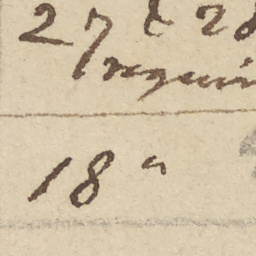 27 & 28
requir
18 "